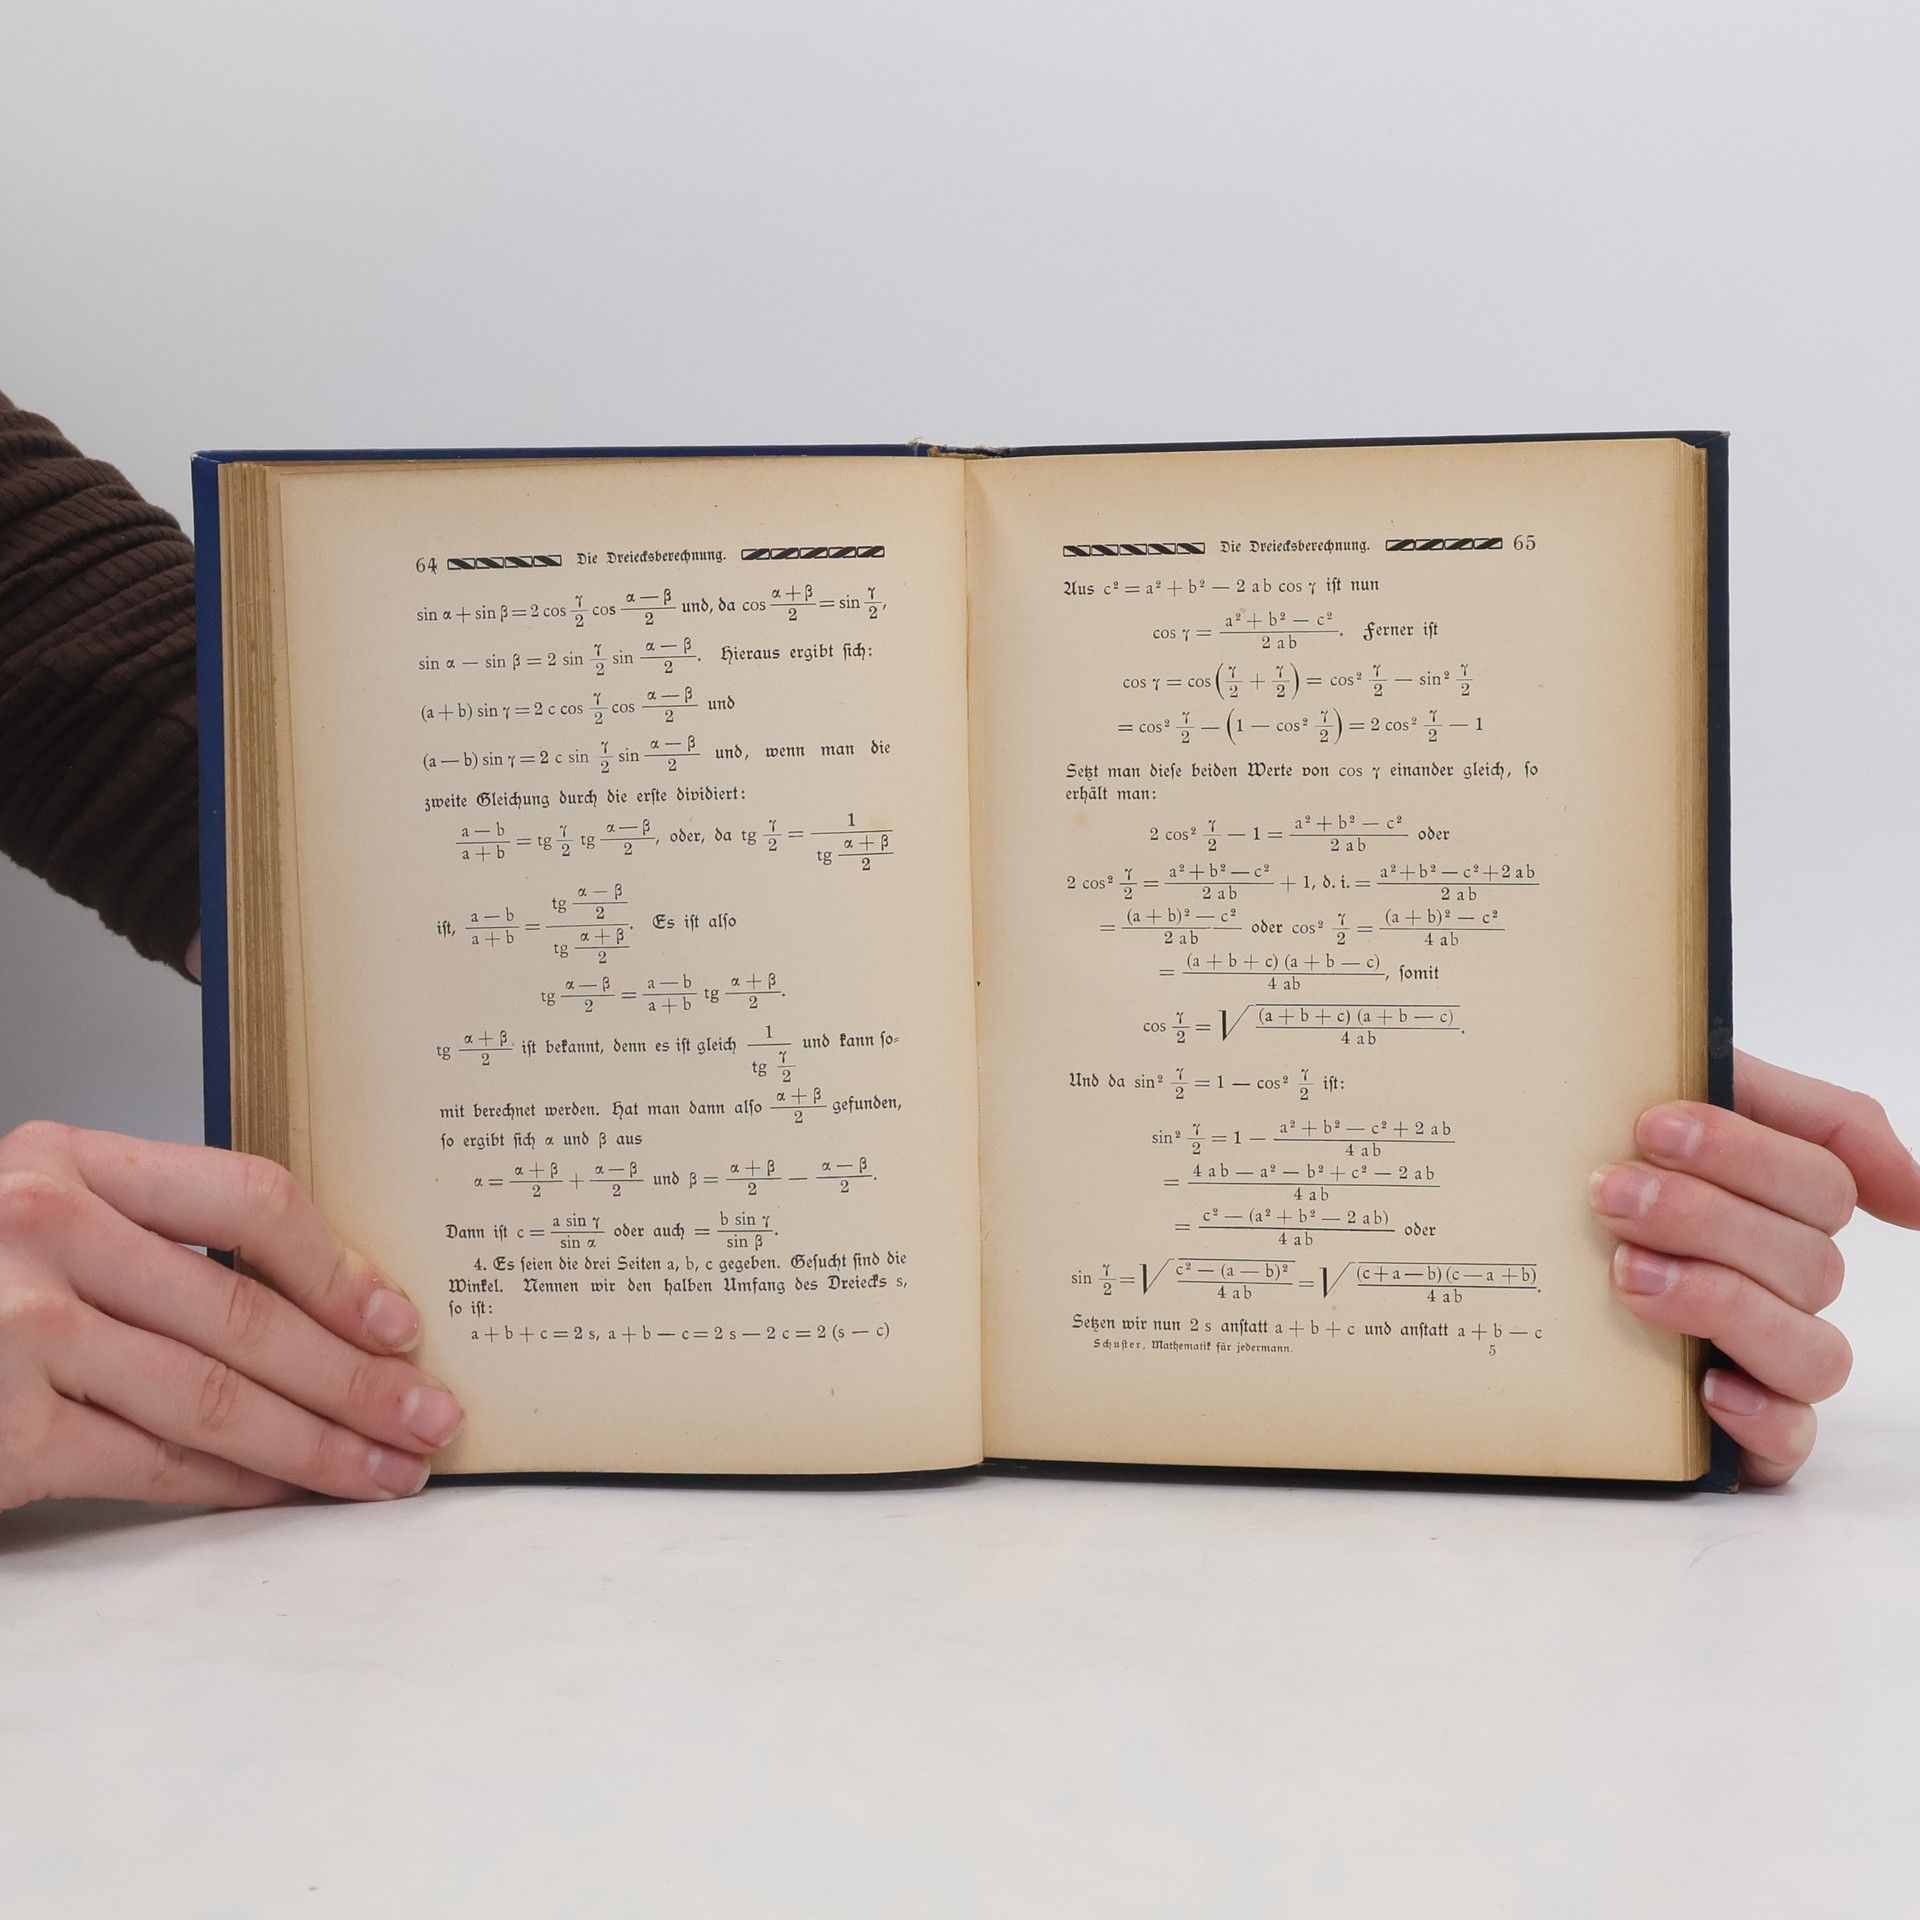 64 Die Dreiecksberechnung.
sin α + sin β = 2 cos γ/2 cos (α — β)/2 und, da cos (α + β)/2 = sin γ/2,
sin α — sin β = 2 sin γ/2 sin (α — β)/2. Hieraus ergibt ſich:
(a + b) sin γ = 2 c cos γ/2 cos (α — β)/2 und
(a — b) sin γ = 2 c sin γ/2 sin (α — β)/2 und, wenn man die
zweite Gleichung durch die erſte dividiert:
(a — b)/(a + b) = tg γ/2 tg (α — β)/2, oder, da tg γ/2 = 1/(tg (α + β)/2)
iſt, (a — b)/(a + b) = (tg (α — β)/2)/(tg (α + β)/2). Es iſt alſo
tg (α — β)/2 = (a — b)/(a + b) tg (α + β)/2.
tg (α + β)/2 iſt bekannt, denn es iſt gleich 1/(tg γ/2) und kann ſo-
mit berechnet werden. Hat man dann alſo (α + β)/2 gefunden,
ſo ergibt ſich α und β aus
α = (α + β)/2 + (α — β)/2 und β = (α + β)/2 — (α — β)/2.
Dann iſt c = (a sin γ)/(sin α) oder auch = (b sin γ)/(sin β).
4. Es ſeien die drei Seiten a, b, c gegeben. Geſucht ſind die
Winkel. Nennen wir den halben Umfang des Dreiecks s,
ſo iſt:
a + b + c = 2 s, a + b — c = 2 s — 2 c = 2 (s — c)
Die Dreiecksberechnung. 65
Aus c² = a² + b² — 2 ab cos γ iſt nun
cos γ = (a² + b² — c²)/(2 ab). Ferner iſt
cos γ = cos (γ/2 + γ/2) = cos² γ/2 — sin² γ/2
= cos² γ/2 — (1 — cos² γ/2) = 2 cos² γ/2 — 1
Setzt man dieſe beiden Werte von cos γ einander gleich, ſo
erhält man:
2 cos² γ/2 — 1 = (a² + b² — c²)/(2 ab) oder
2 cos² γ/2 = (a² + b² — c²)/(2 ab) + 1, d. i. = (a² + b² — c² + 2 ab)/(2 ab)
= ((a + b)² — c²)/(2 ab) oder cos² γ/2 = ((a + b)² — c²)/(4 ab)
= ((a + b + c) (a + b — c))/(4 ab), ſomit
cos γ/2 = √((a + b + c) (a + b — c))/(4 ab).
Und da sin² γ/2 = 1 — cos² γ/2 iſt:
sin² γ/2 = 1 — (a² + b² — c² + 2 ab)/(4 ab)
= (4 ab — a² — b² + c² — 2 ab)/(4 ab)
= (c² — (a² + b² — 2 ab))/(4 ab) oder
sin γ/2 = √(c² — (a — b)²)/(4 ab) = √((c + a — b) (c — a + b))/(4 ab).
Setzen wir nun 2 s anſtatt a + b + c und anſtatt a + b — c
Schuſter, Mathematik für jedermann. 5